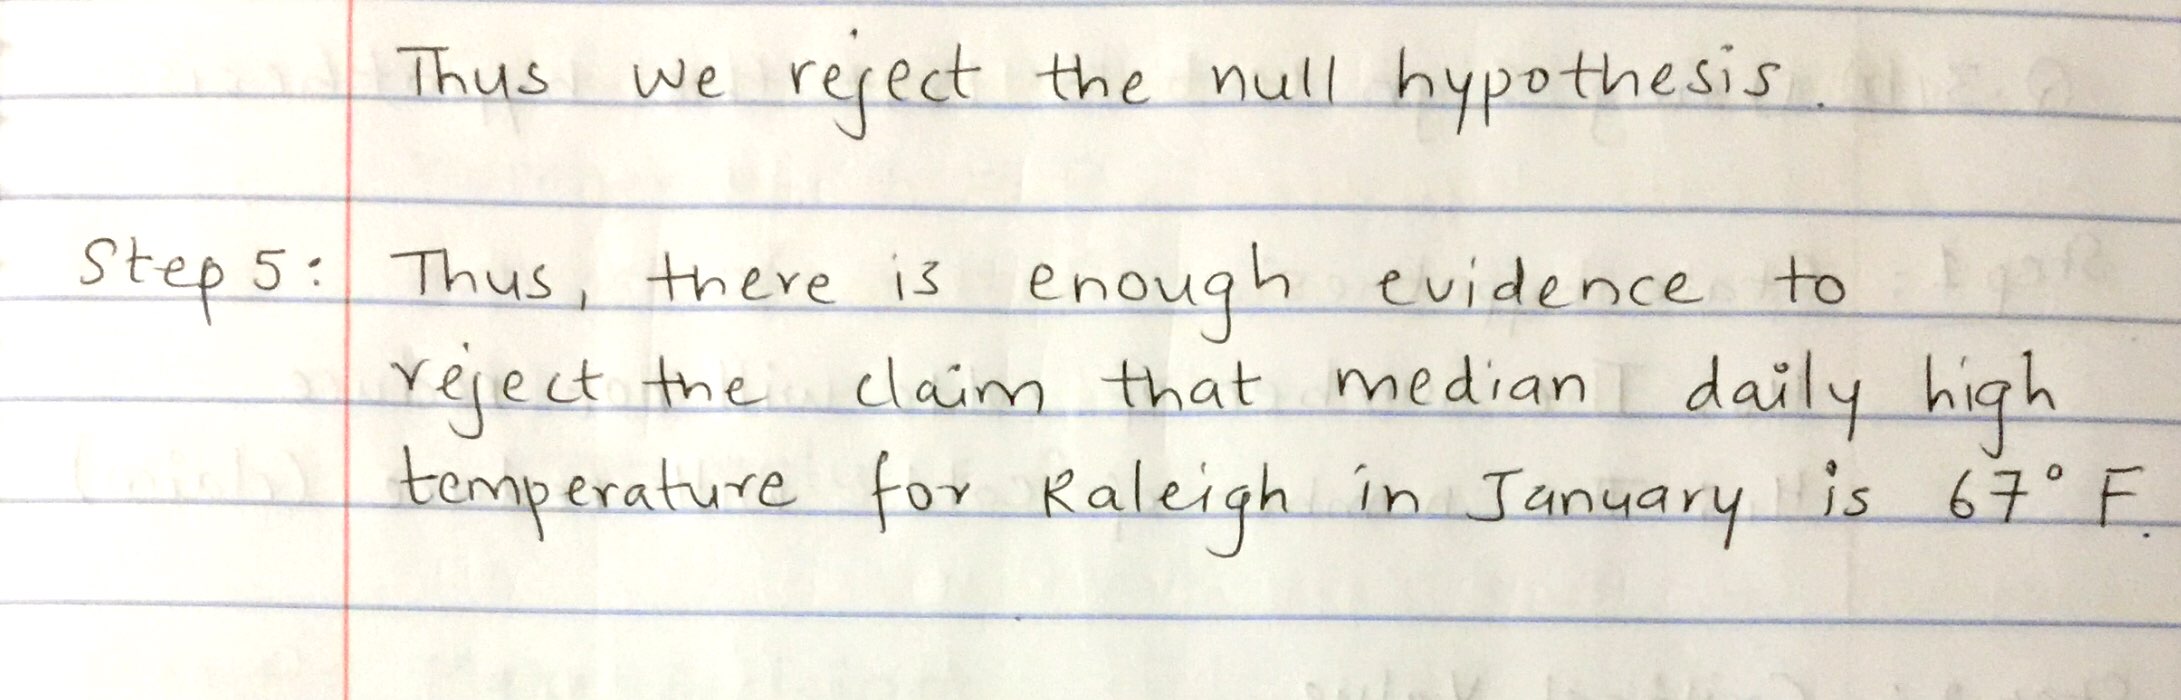 Thus we reject the null hypothesis.
Step 5: Thus, there is enough evidence to
reject the claim that median daily high
temperature for Raleigh in January is 67° F.